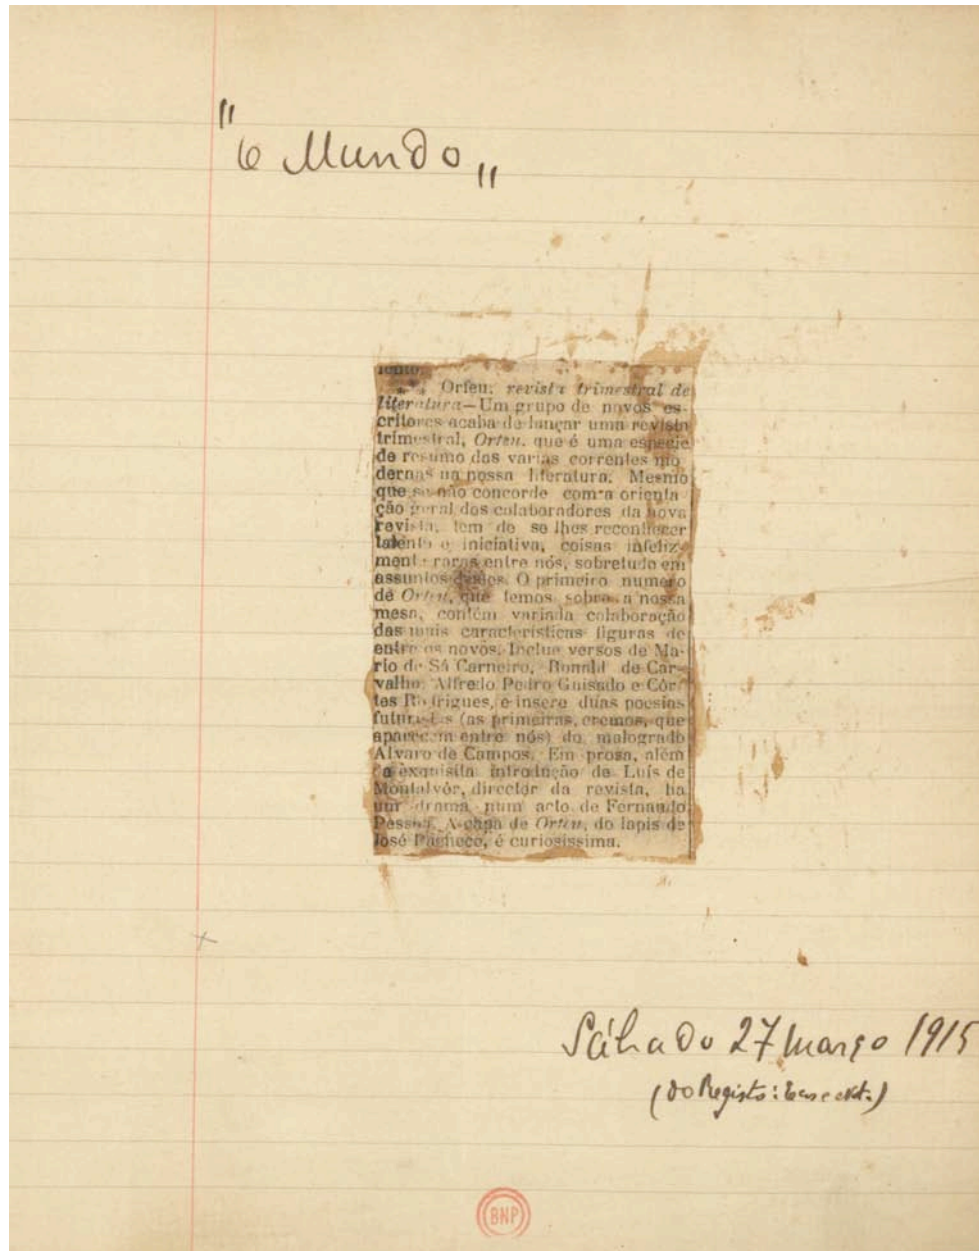 "O Mundo"
mento.
Orfeu, revista trimestral de
literatura—Um grupo de novos es-
critores acaba de lançar uma revista
trimestral, Orfeu, que é uma especie
de resumo das varias correntes mo
dernas na nossa literatura. Mesmo
que se não concorde com a orienta
ção geral dos colaboradores da nova
revista, tem de se lhes reconhecer
talento e iniciativa, coisas infeliz-
mente raras entre nós, sobretudo em
assuntos destes. O primeiro numero
de Orfeu, que temos sobre a nossa
mesa, contém variada colaboração
das mais características figuras de
entre os novos. Inclue versos de Ma-
rio de Sá Carneiro, Ronald de Car-
valho, Alfredo Pedro Guisado e Côr-
tes Rodrigues, e insere duas poesias
futuristas (as primeiras, cremos, que
aparecem entre nós) do malogrado
Alvaro de Campos. Em prosa, além
da exquisita introdução de Luís de
Montalvôr, director da revista, ha
um drama num acto de Fernando
Pessoa. A capa de Orfeu, do lapis de
José Pacheco, é curiosissima.
Sábado 27 março 1915
(do Registo:
BNP